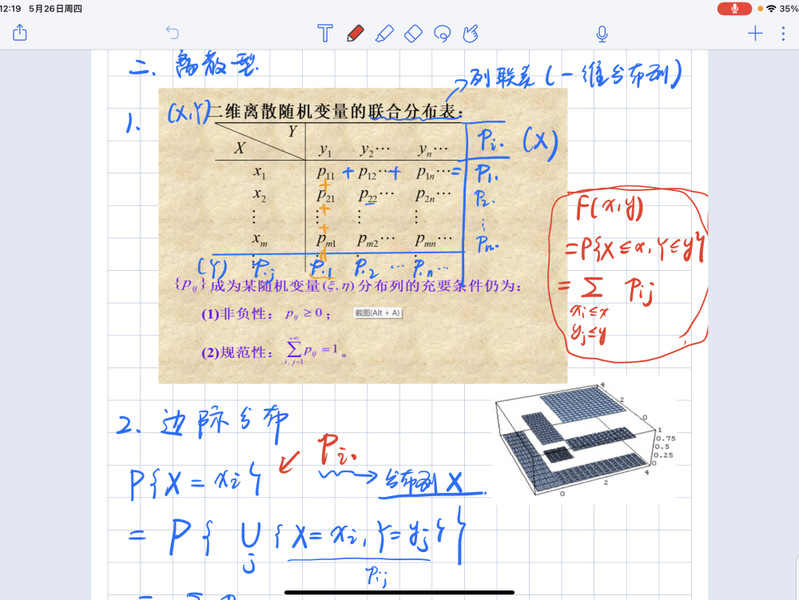 12:19 5月26日周四
35%
二、离散型
列联表(一维分布列)
1.
(X,Y)二维离散随机变量的联合分布表:
X Y y₁ y₂⋯ yₙ⋯ Pi. (X)
x₁ p₁₁ + p₁₂⋯ + p₁ₙ⋯ = P1.
x₂ p₂₁ p₂₂⋯ p₂ₙ⋯ P2.
⋮ ⋮ ⋮ ⋮ ⋮
xₘ pₘ₁ pₘ₂⋯ pₘₙ⋯ Pn.
(Y) P.j P.1 P.2 ⋯ P.n⋯
{pᵢⱼ}成为某随机变量(ξ,η)分布列的充要条件仍为:
(1)非负性: pᵢⱼ ≥ 0;
截图(Alt + A)
(2)规范性: +∞ ∑ i, j=1 pᵢⱼ = 1。
F(x,y)
=P{X≤x,Y≤y}
= ∑ Pij
xi≤x
yj≤y
4
2
0
1
0.75
0.5
0.25
0
4
2
0
2. 边际分布
Pi.
P{X=xi}
分布列 X
= P{ ∪ {X=xi,Y=yj}}
j
Pij